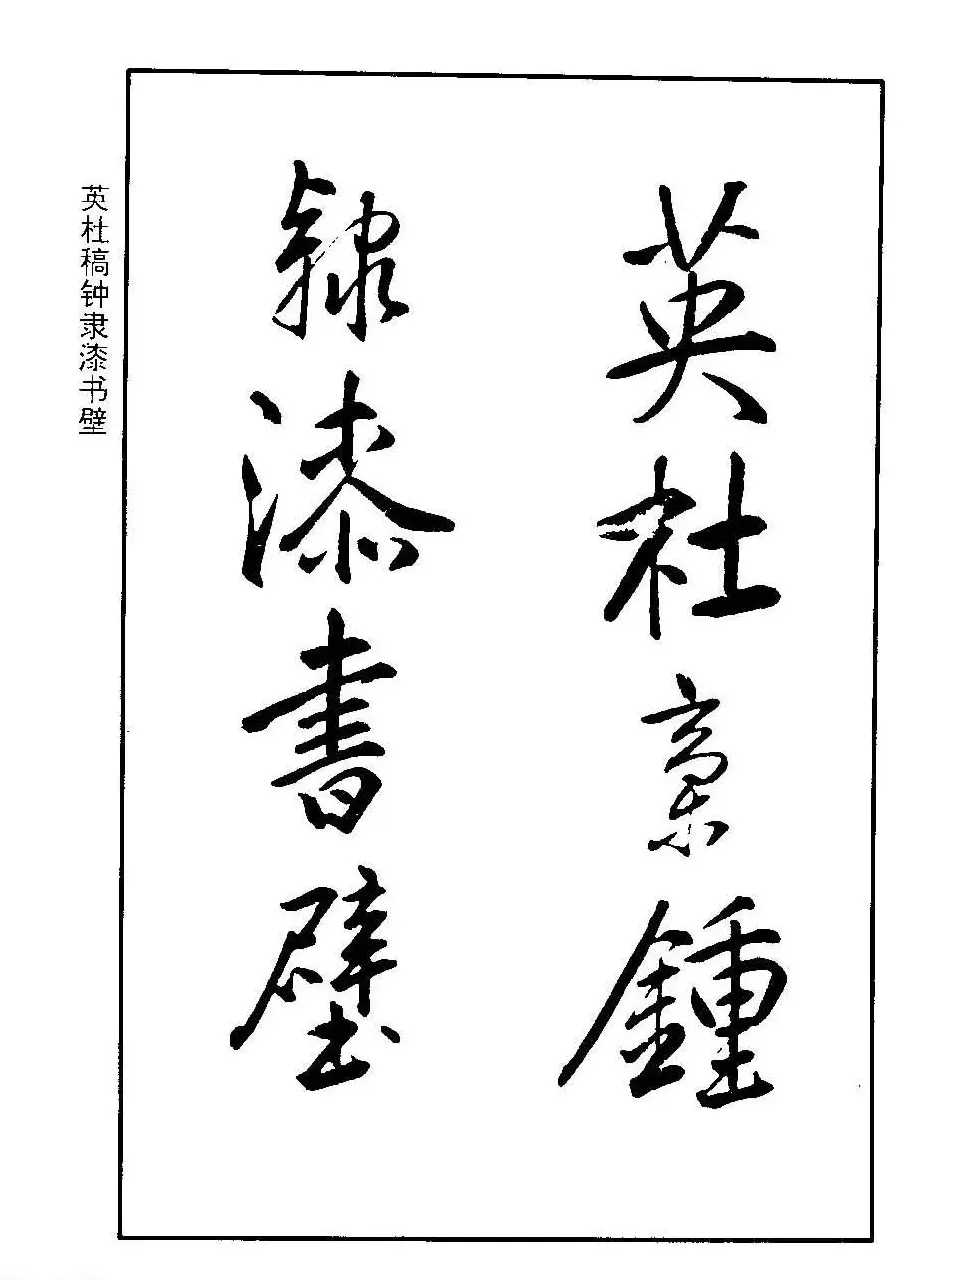 英杜稾鍾
隸漆書壁
英杜稿钟隶漆书壁